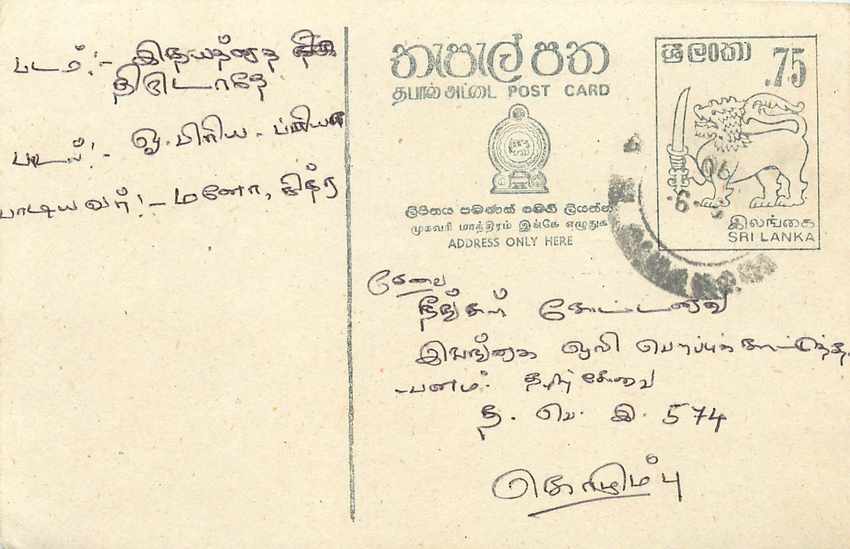 படம்:- இதயத்தை
திருடாதே
பாடல்:- ஓ பிரியா
பாடியவர்:- மனோ, சித்ரா
තැපැල් පත
தபால் அட்டை POST CARD
ශ්‍රී ලංකා
.75
ලිපිනය පමණක් මෙහි ලියන්න
முகவரி மாத்திரம் இங்கே எழுதுக
ADDRESS ONLY HERE
இலங்கை
SRI LANKA
சேவை
நீங்கள் கேட்டவை
இலங்கை ஒலி பரப்புக் கூட்டுத்தா
-பனம். தமிழ்சேவை
த. பெ. இ. 574
கொழும்பு